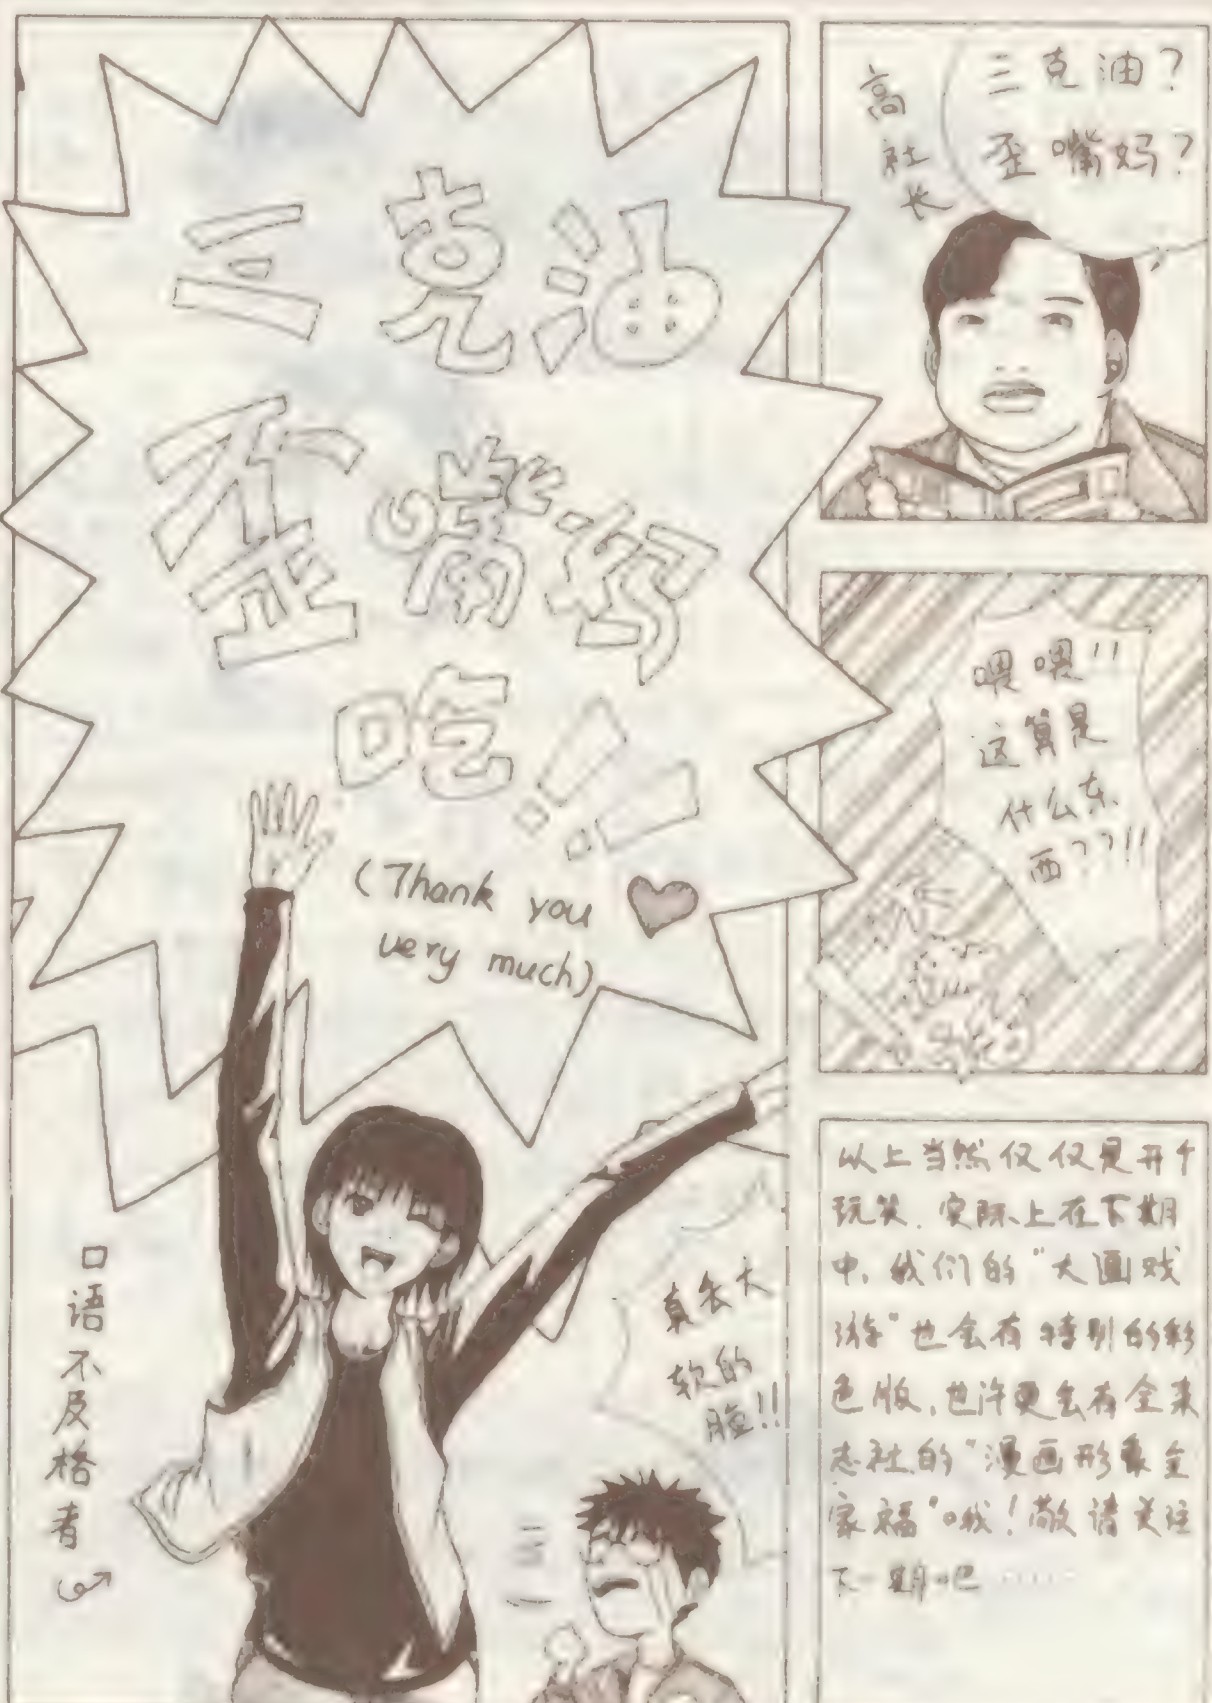 三克油
歪嘴妈
吃!!
(Thank you
very much)
口语不及格者
真会大
软的
脸!!
三
高社长
三克油?
歪嘴妈?
喂喂!!
这算是
什么东
西??!!
以上当然仅仅是开个
玩笑.实际上在下期
中,我们的"大画戏
游"也会有特别的彩
色版,也许更会有全杂
志社的"漫画形象全
家福"哦!敬请关注
下一期吧……